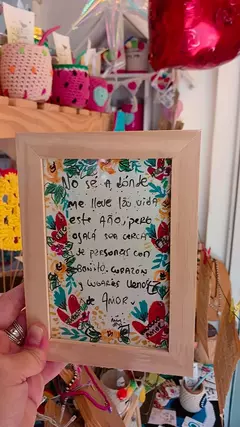 No sé a dónde
me lleve la vida
este año, pero
ojalá sea cerca
de personas con
Bonito corazón
y lugares llenos
de Amor.